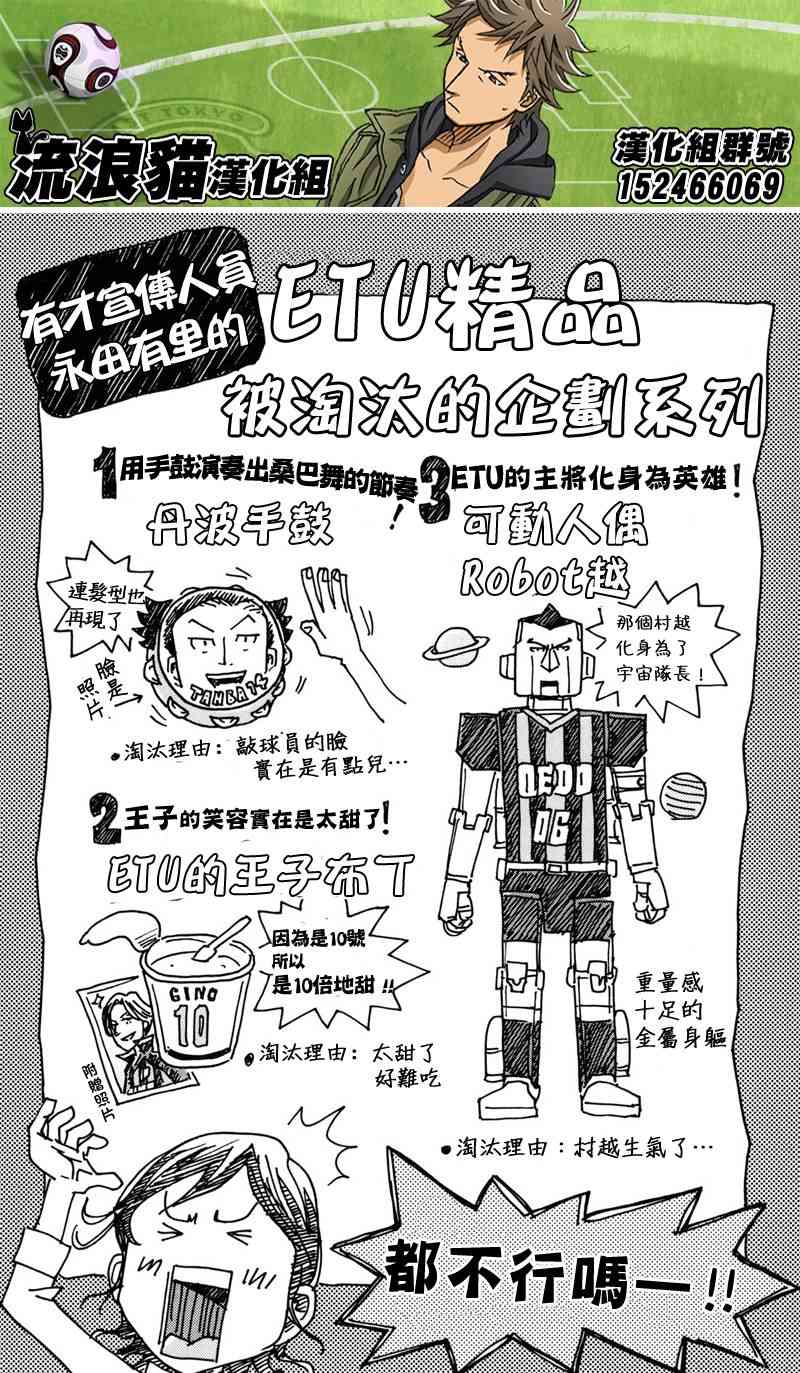 流浪貓漢化組
漢化組群號
152466069
有才宣傳人員
永田有里的
ETU精品
被淘汰的企劃系列
1用手鼓演奏出桑巴舞的節奏!
丹波手鼓
連髮型也
再現了
臉是
照片
TAMBA 14
•淘汰理由:敲球員的臉
實在是有點兒…
2王子的笑容實在是太甜了!
ETU的王子布丁
GINO
10
因為是10號
所以
是10倍地甜!!
附贈照片
•淘汰理由:太甜了
好難吃
3ETU的主將化身為英雄!
可動人偶
Robot越
那個村越
化身為了
宇宙隊長!
OEDO
06
重量感
十足的
金屬身軀
•淘汰理由:村越生氣了…
都不行嗎—!!